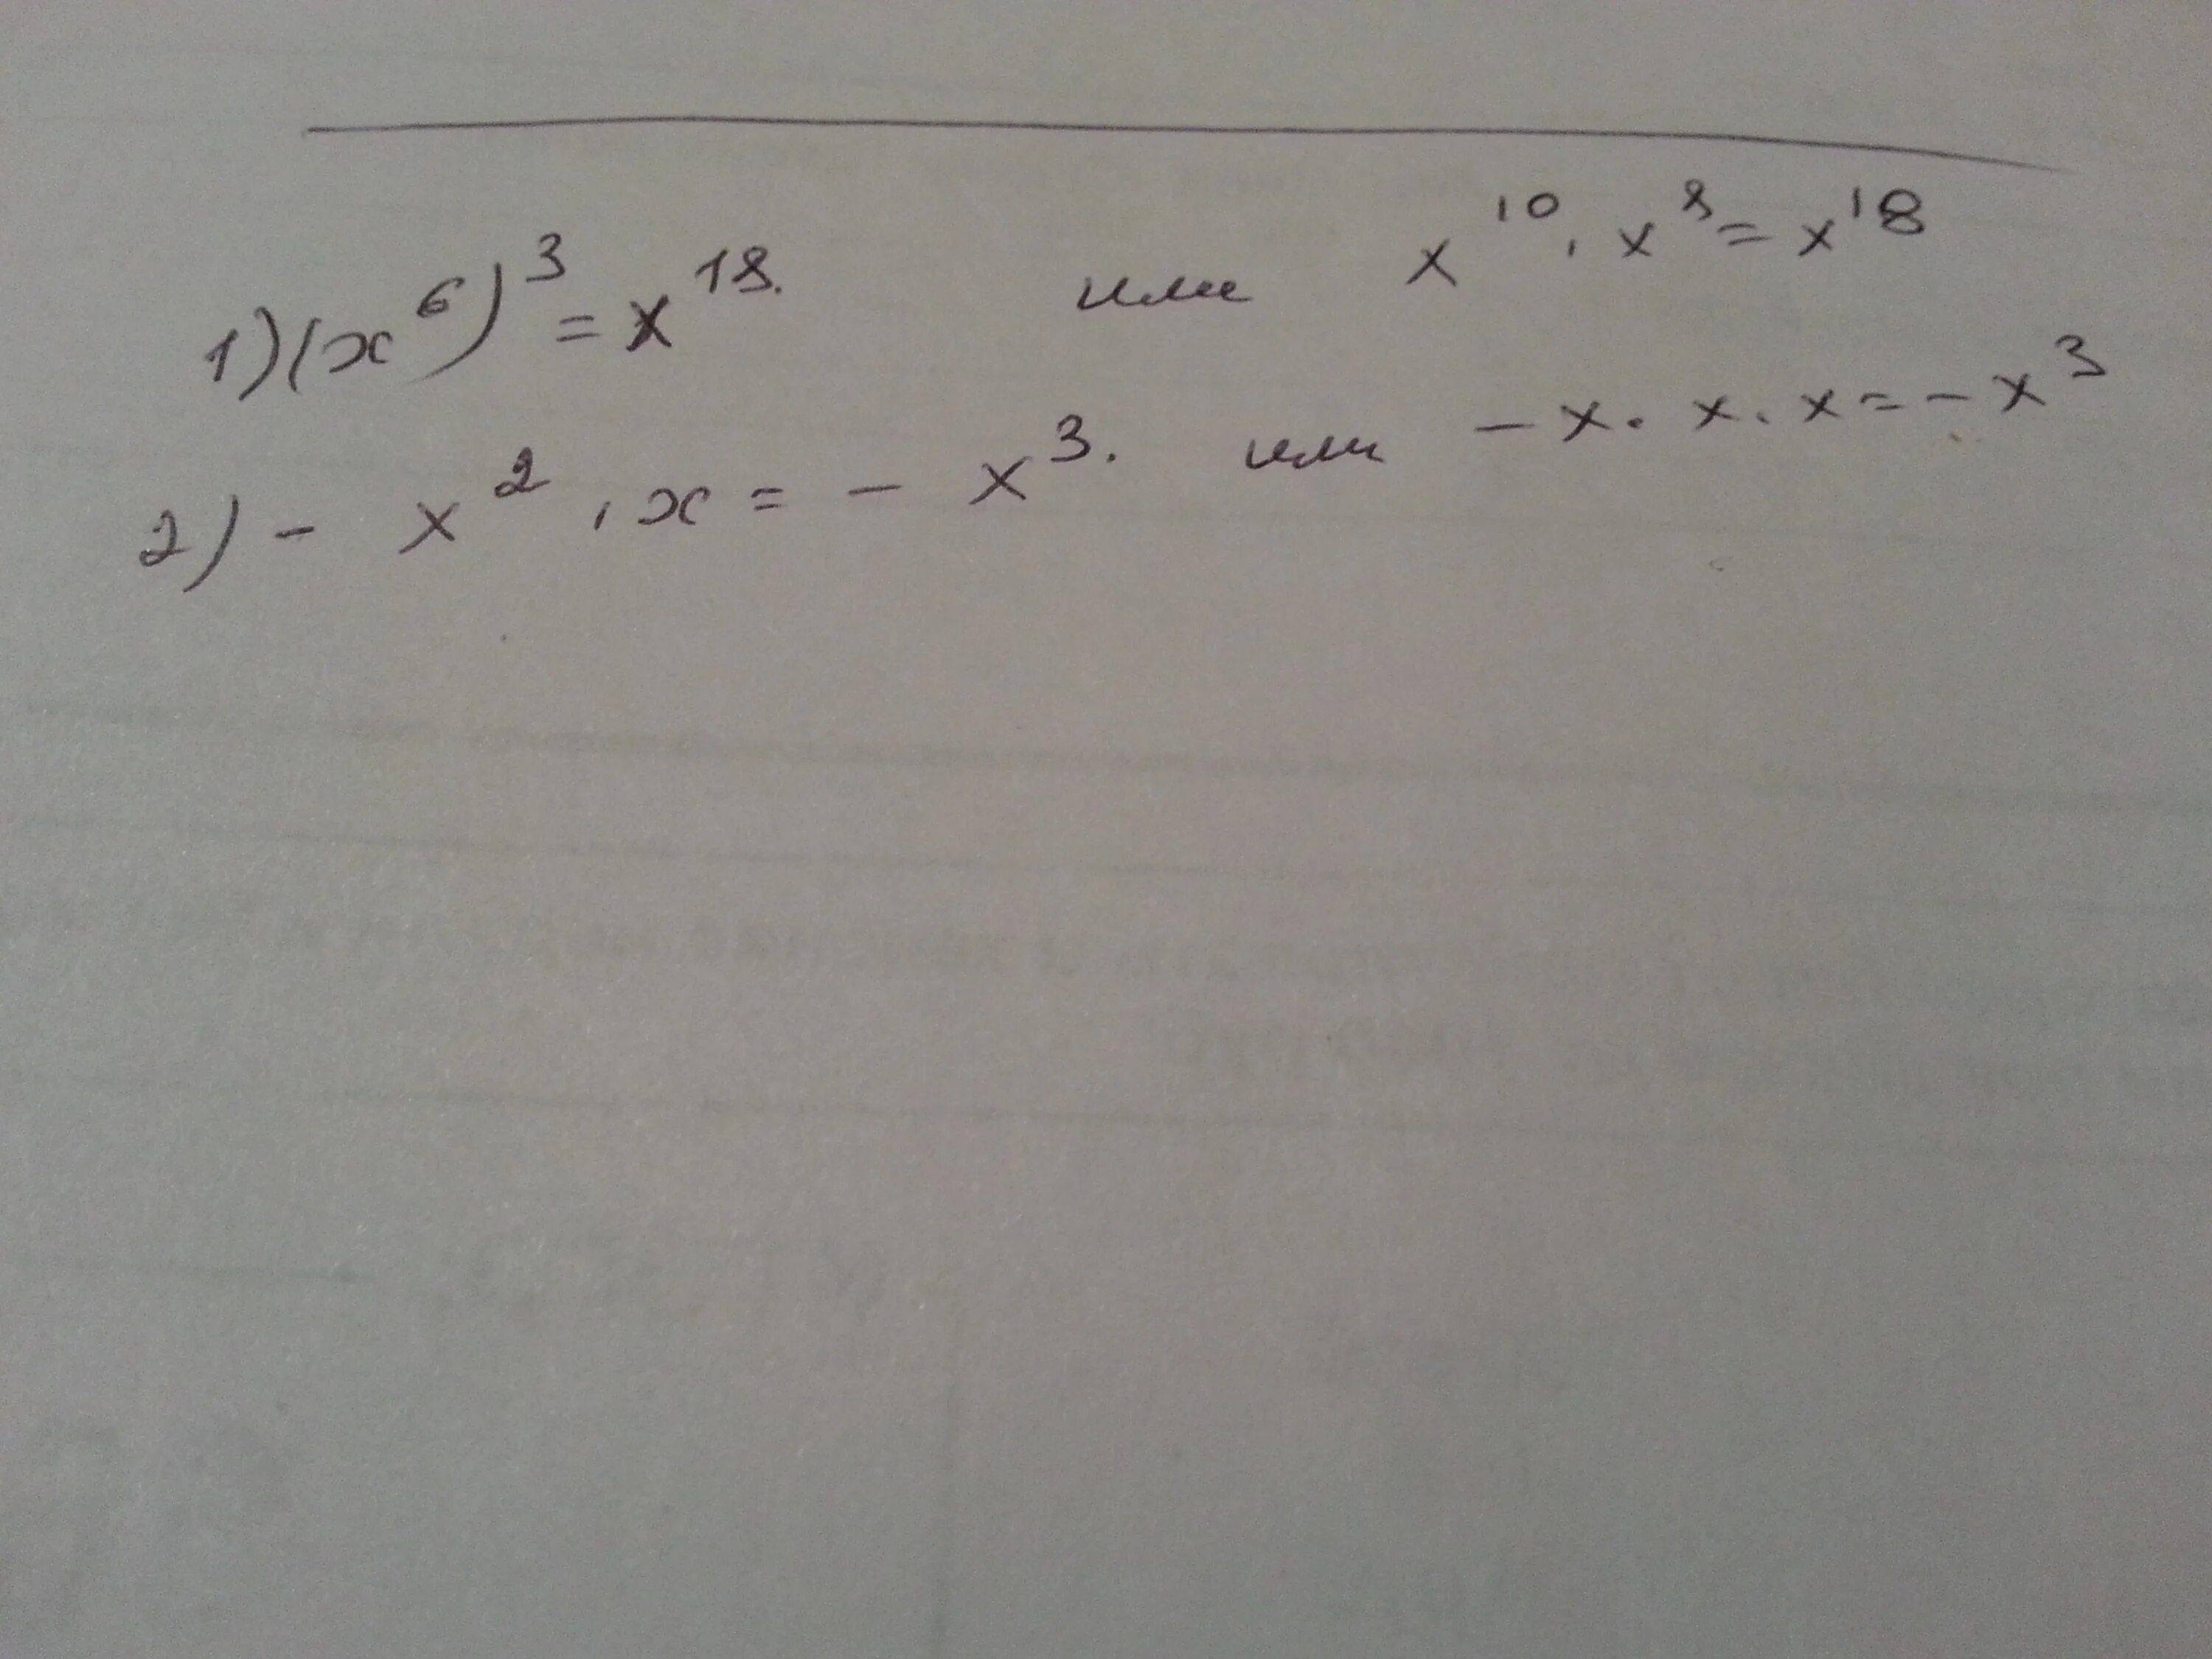 1) (x⁶)³ = x¹⁸. или x¹⁰ · x⁸ = x¹⁸
2) - x² · x = - x³. или - x · x · x = - x³